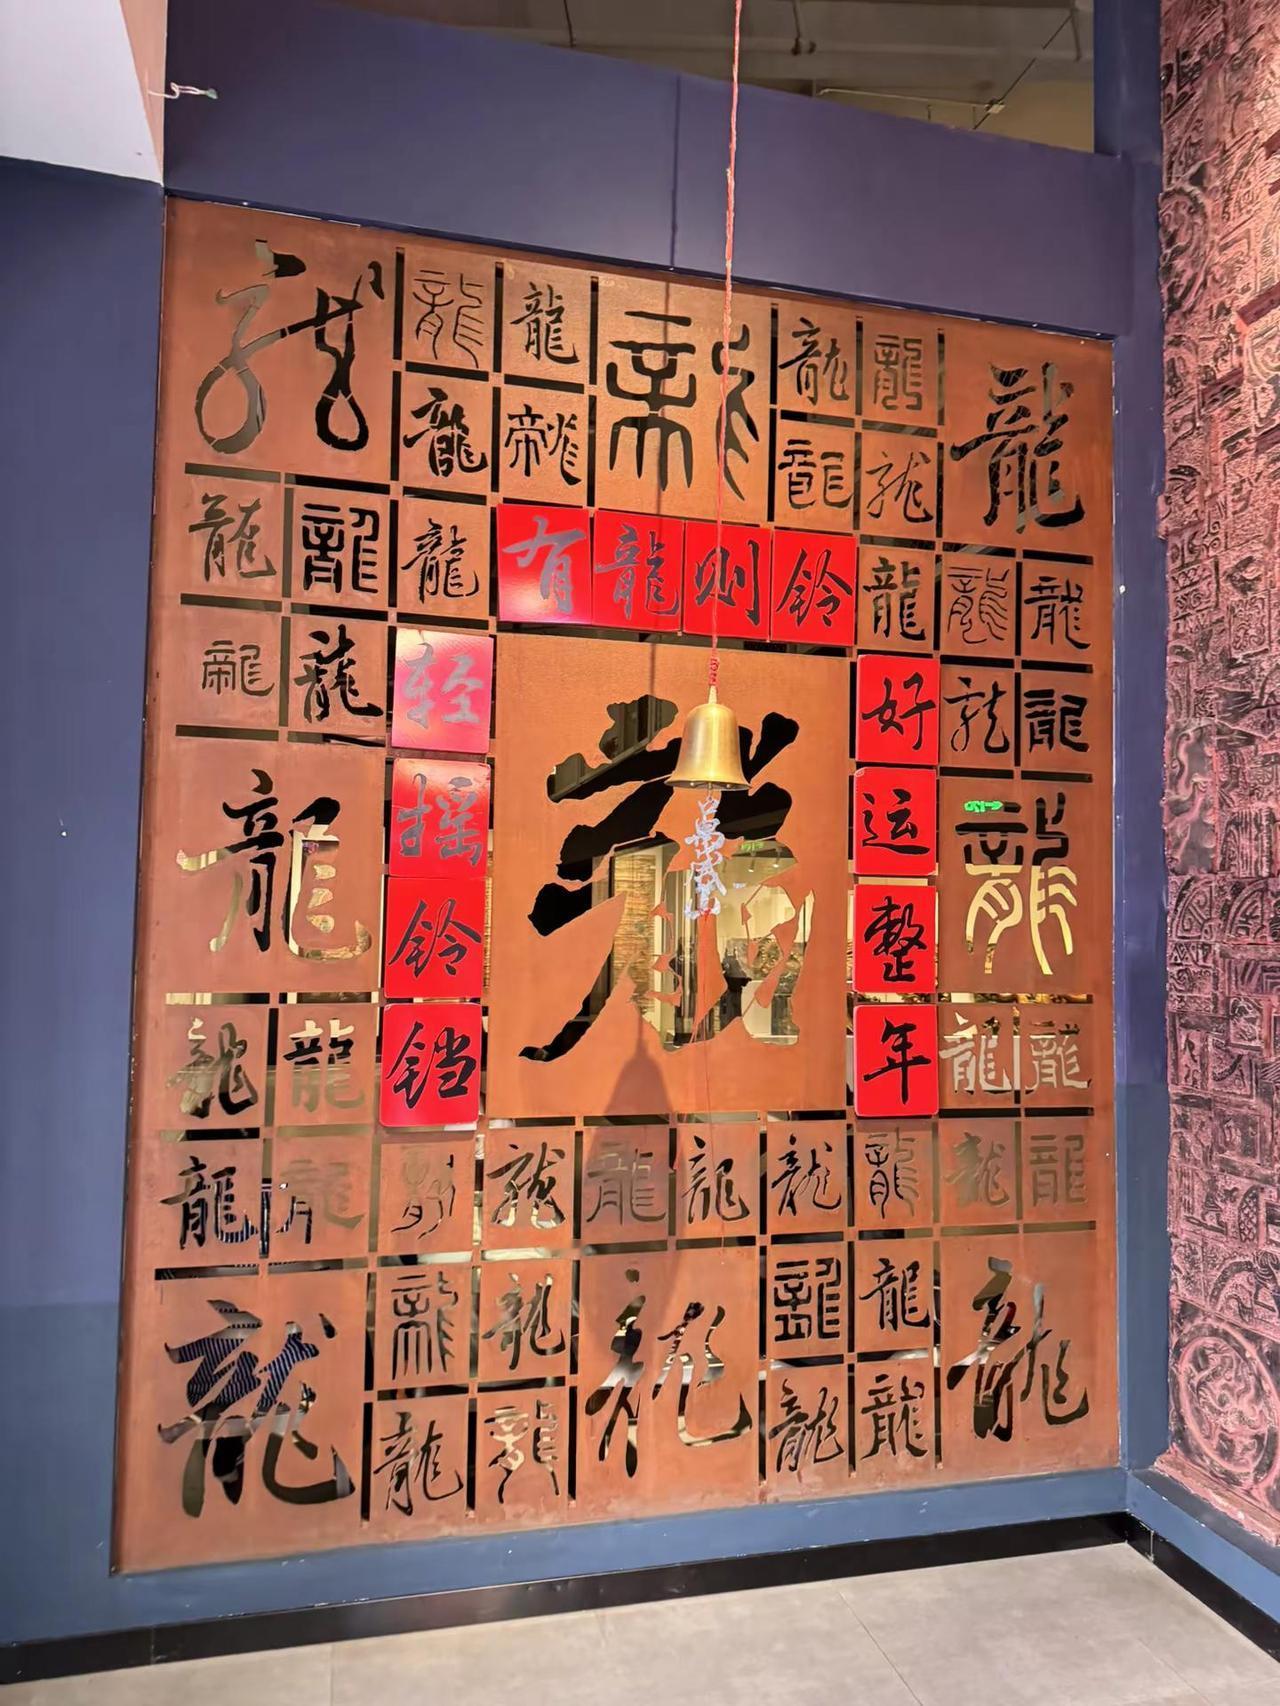 龍 龍 龍 龍 龍 龍 龍
龍 龍 龍 龍
龍 龍 龍
有龍则铃
龍 龍 龍
龍 龍
轻摇铃铛
好运整年
龍 龍
龍 龍 龍
龍 龍 龍 龍
龍 龍 龍 龍 龍 龍 龍 龍 龍 龍
龍 龍 龍 龍 龍 龍 龍
龍 龍 龍 龍